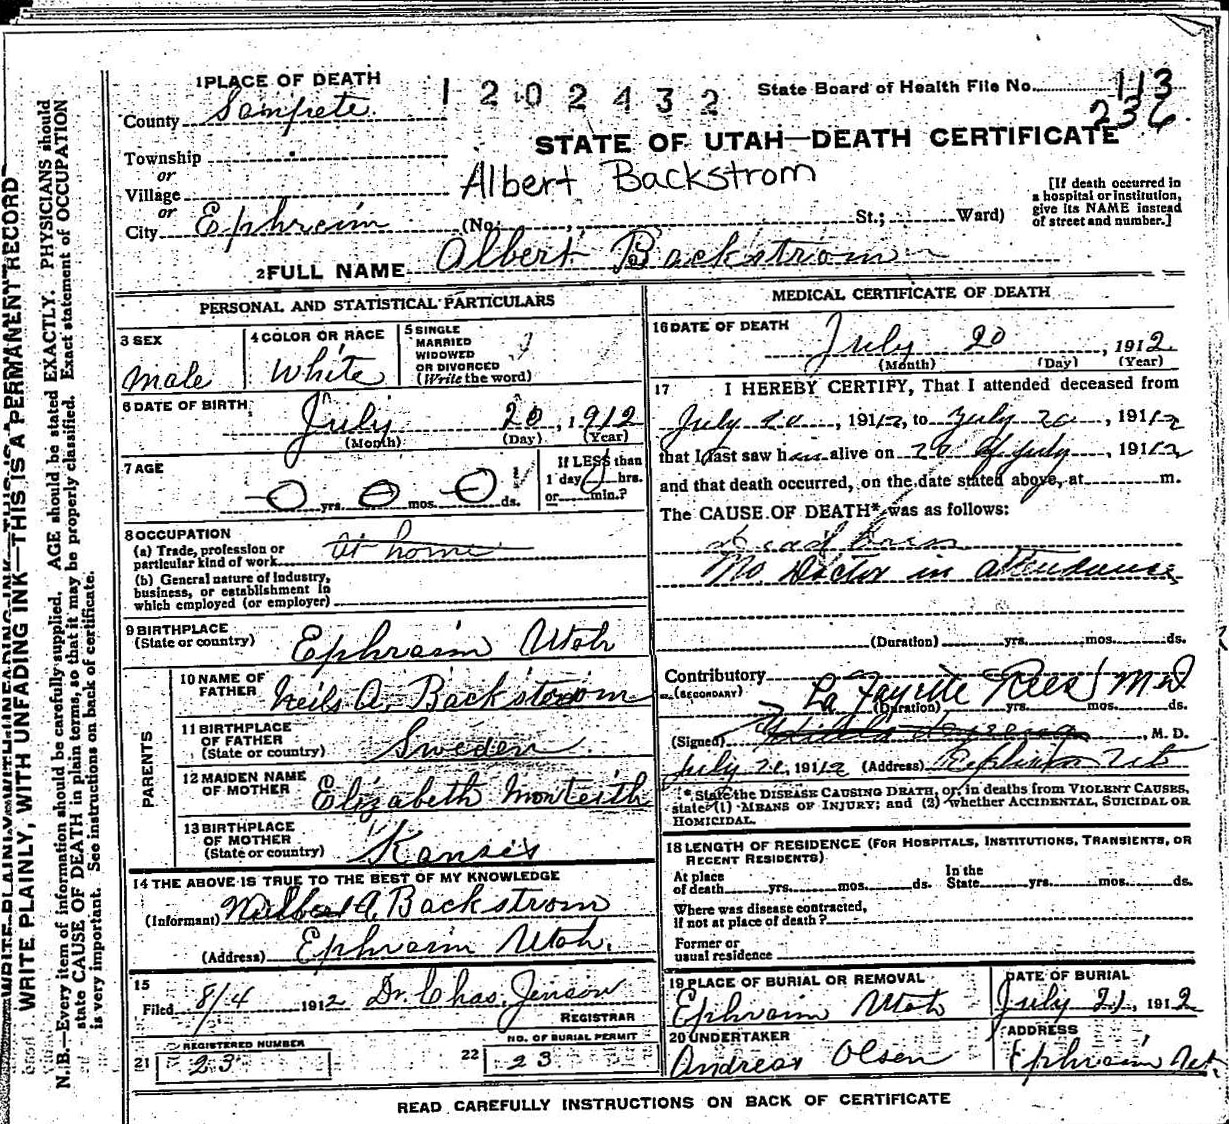 1 PLACE OF DEATH
1202432
State Board of Health File No. 113
236
County Sanpete
STATE OF UTAH—DEATH CERTIFICATE
Township
or
Village
or
City Ephraim
Albert Backstrom
(No. St.; Ward)
[If death occurred in
a hospital or institution,
give its NAME instead
of street and number.]
2 FULL NAME Albert Backstrom
PERSONAL AND STATISTICAL PARTICULARS
3 SEX
Male
4 COLOR OR RACE
White
5 SINGLE
MARRIED
WIDOWED
OR DIVORCED
(Write the word)
6 DATE OF BIRTH
July 20, 1912
(Month) (Day) (Year)
7 AGE
0 yrs. 0 mos. 0 ds.
If LESS than
1 day 0 hrs.
or min.?
8 OCCUPATION
(a) Trade, profession or
particular kind of work At home
(b) General nature of industry,
business, or establishment in
which employed (or employer)
9 BIRTHPLACE
(State or country) Ephraim Utah
PARENTS
10 NAME OF
FATHER Neils A. Backstrom
11 BIRTHPLACE
OF FATHER
(State or country) Sweden
12 MAIDEN NAME
OF MOTHER Elizabeth Monteith
13 BIRTHPLACE
OF MOTHER
(State or country) Kansis
14 THE ABOVE IS TRUE TO THE BEST OF MY KNOWLEDGE
(Informant) A. Backstrom
(Address) Ephraim Utah.
15
Filed 8/4 1912 Dr. Chas. Jenson
REGISTRAR
REGISTERED NUMBER
21 23
NO. OF BURIAL PERMIT
22 23
MEDICAL CERTIFICATE OF DEATH
16 DATE OF DEATH
July 20, 1912
(Month) (Day) (Year)
17 I HEREBY CERTIFY, That I attended deceased from
July 20, 1912, to July 20, 1912
that I last saw h alive on 20 of July, 1912
and that death occurred, on the date stated above, at m.
The CAUSE OF DEATH* was as follows:
Dead born
No Doctor in attendance
(Duration) yrs. mos. ds.
Contributory
(SECONDARY)
La Fayette Rees MD
(Duration) yrs. mos. ds.
(Signed) , M. D.
July 21, 1912 (Address) Ephraim Ut
[* State the DISEASE CAUSING DEATH, or, in deaths from VIOLENT CAUSES,
state (1) MEANS OF INJURY; and (2) whether ACCIDENTAL, SUICIDAL OR
HOMICIDAL.
18 LENGTH OF RESIDENCE (FOR HOSPITALS, INSTITUTIONS, TRANSIENTS, OR
RECENT RESIDENTS)
At place
of death yrs. mos. ds.
In the
State yrs. mos. ds.
Where was disease contracted,
if not at place of death?
Former or
usual residence
19 PLACE OF BURIAL OR REMOVAL
Ephraim Utah
DATE OF BURIAL
July 21, 1912
20 UNDERTAKER
Andreas Olsen
ADDRESS
Ephraim Ut.
READ CAREFULLY INSTRUCTIONS ON BACK OF CERTIFICATE
WRITE PLAINLY, WITH UNFADING INK—THIS IS A PERMANENT RECORD
N.B.—Every item of information should be carefully supplied. AGE should be stated EXACTLY. PHYSICIANS should
state CAUSE OF DEATH in plain terms, so that it may be properly classified. Exact statement of OCCUPATION
is very important. See instructions on back of certificate.